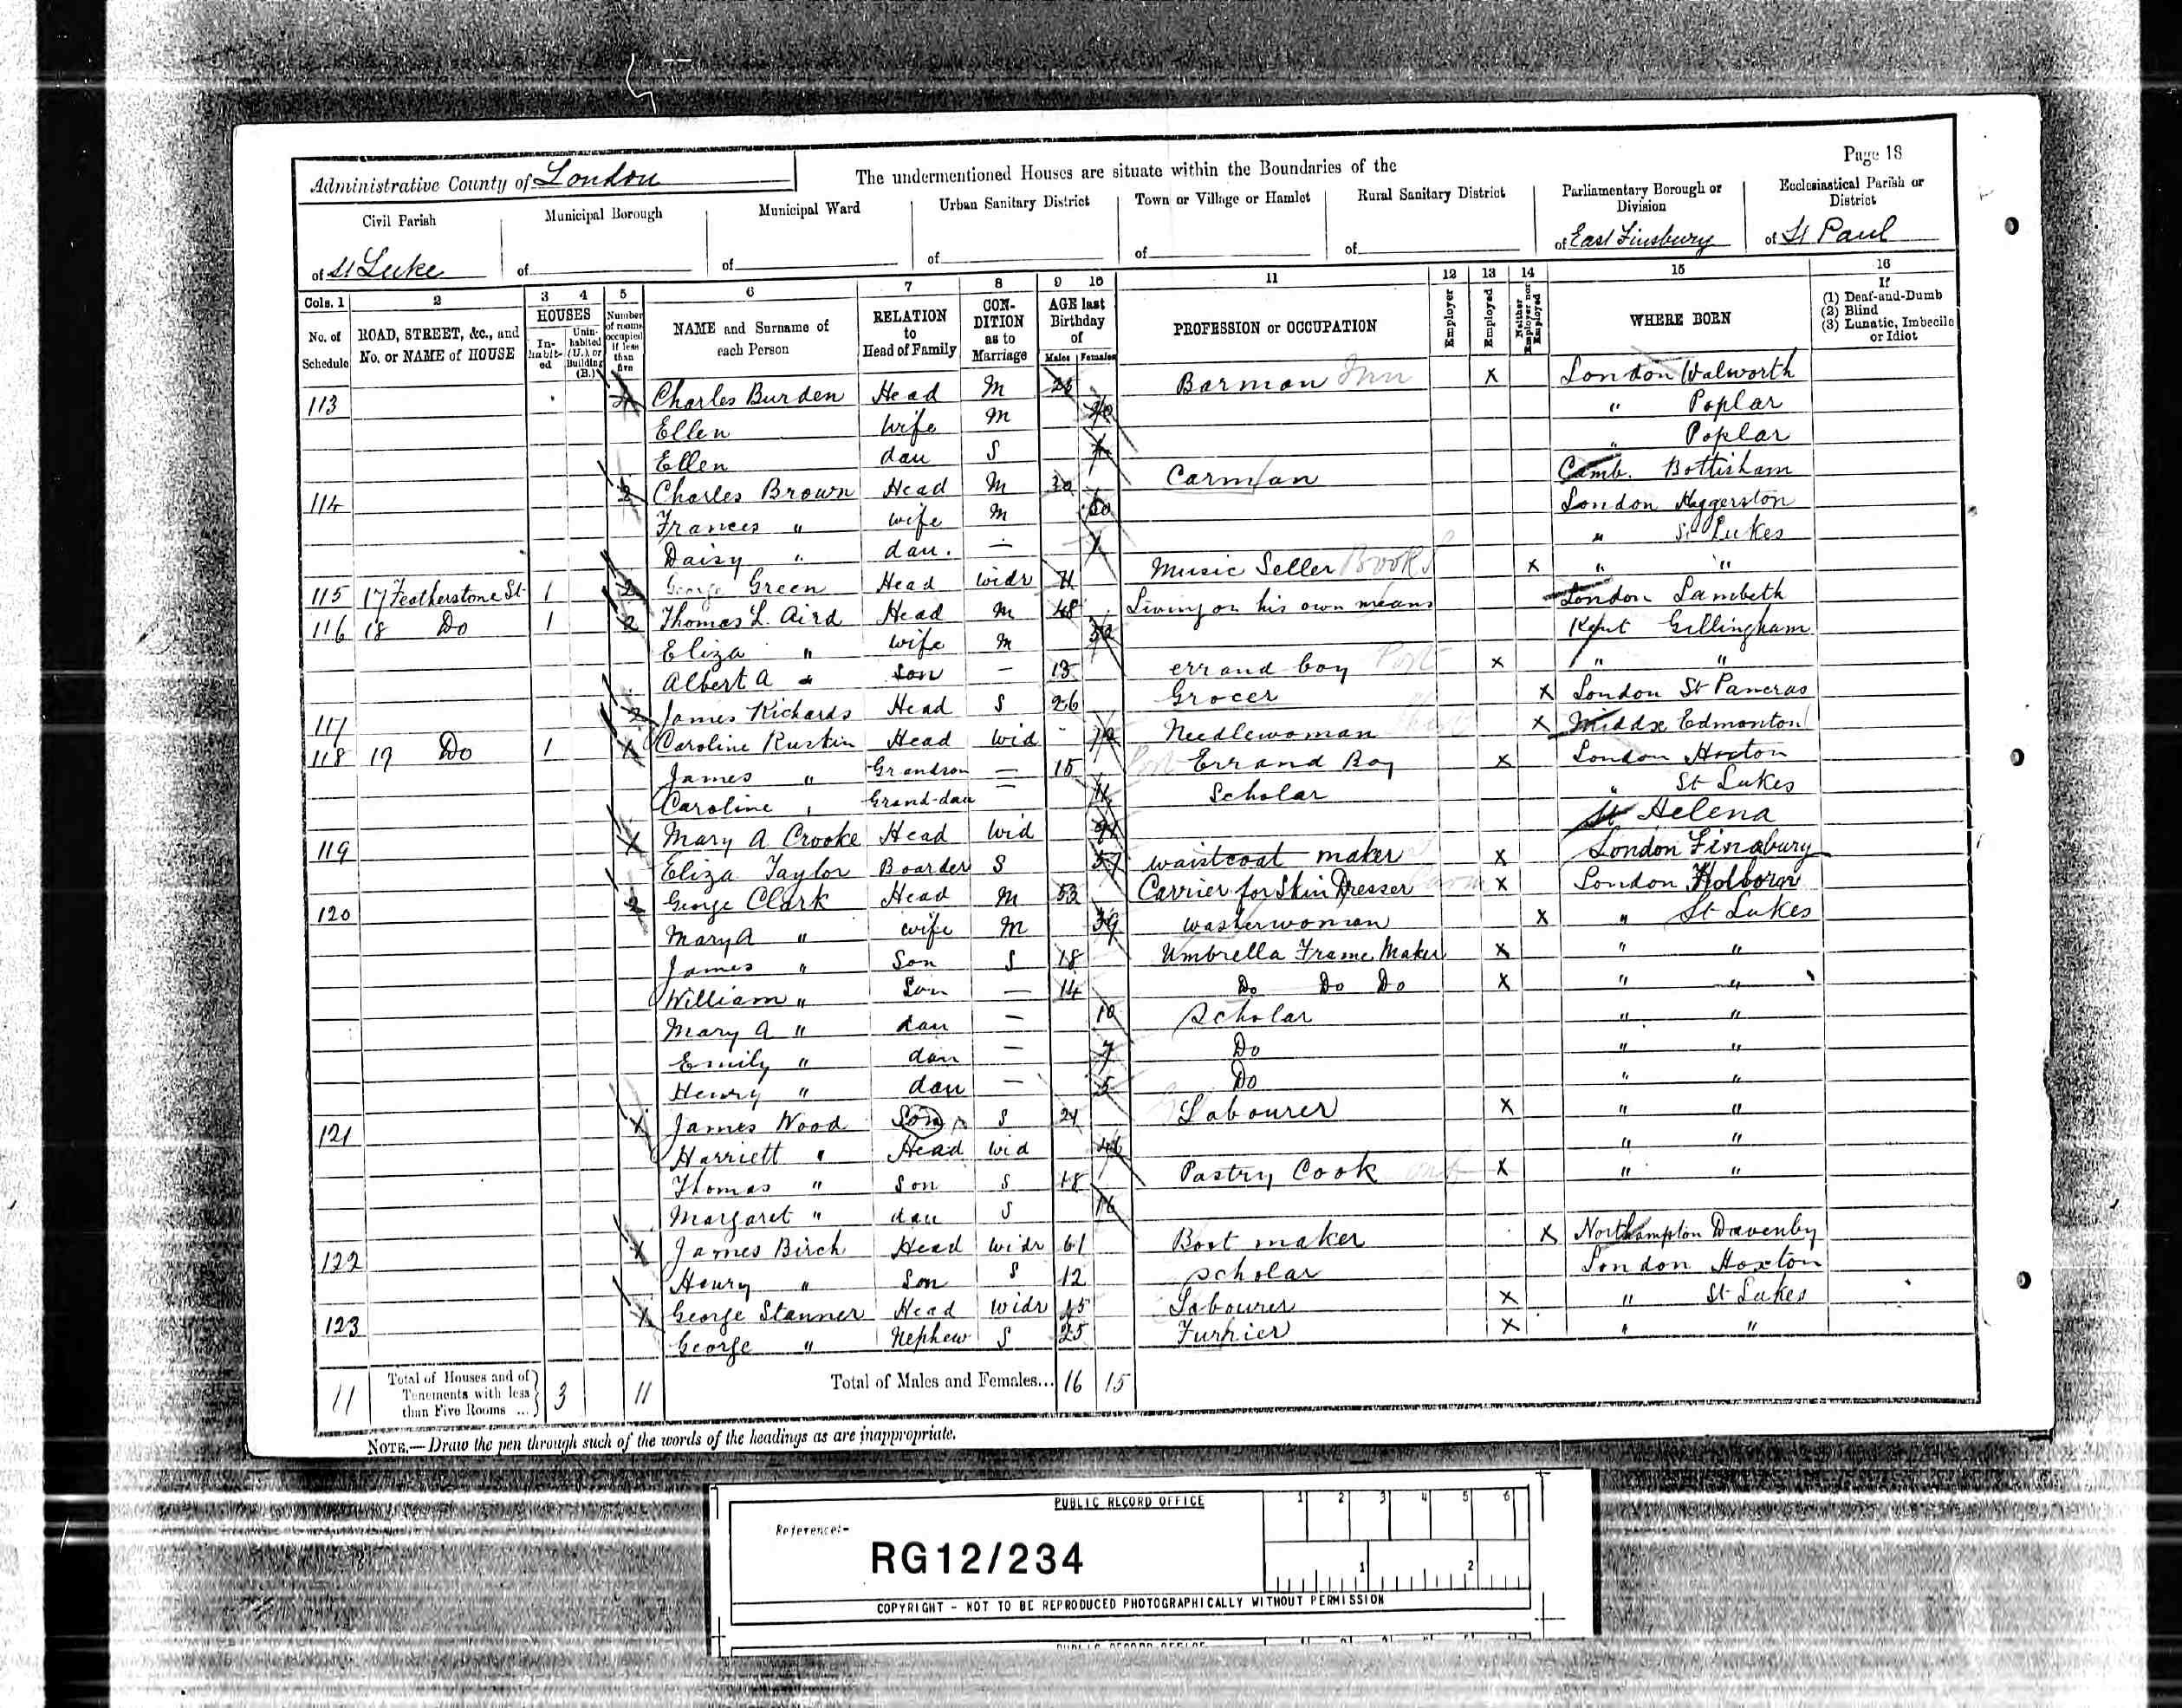 Page 18
Administrative County of London
The undermentioned Houses are situate within the Boundaries of the
Civil Parish Municipal Borough Municipal Ward Urban Sanitary District Town or Village or Hamlet Rural Sanitary District Parliamentary Borough or Division Ecclesiastical Parish or District
of St Luke of of of of of of East Finsbury of St Paul
Cols. 1 2 3 4 5 6 7 8 9 10 11 12 13 14 15 16
No. of Schedule ROAD, STREET, &c., and No. or NAME of HOUSE HOUSES In-habit-ed Unin-habited (U.), or Building (B.) Number of rooms occupied if less than five NAME and Surname of each Person RELATION to Head of Family CON-DITION as to Marriage AGE last Birthday of Males Females PROFESSION or OCCUPATION Employer Employed Neither Employer nor Employed WHERE BORN If (1) Deaf-and-Dumb (2) Blind (3) Lunatic, Imbecile or Idiot
113 Charles Burden Head M Barman Inn X London Walworth
Ellen wife M " Poplar
Ellen dau S " Poplar
114 2 Charles Brown Head M 30 Carman Camb. Bottisham
Frances " wife M 30 London Haggerston
Daisy " dau. — " St Lukes
115 17 Featherstone St 1 2 George Green Head widr 71 Music Seller Books X " "
116 18 Do 1 2 Thomas L. Aird Head M 48 Living on his own means London Lambeth
Eliza " wife M Kent Gillingham
Albert A " Son — 13 errand boy Post X " "
117 2 James Richards Head S 26 Grocer X London St Pancras
118 19 Do 1 1 Caroline Ruskin Head wid Needlewoman X Middx Edmonton
James " Grandson — 15 Errand Boy X London Hoxton
Caroline " Grand-dau — 11 Scholar " St Lukes
119 1 Mary A Crooke Head Wid St Helena
Eliza Taylor Boarder S 57 waistcoat maker X London Finsbury
120 2 George Clark Head M 53 Carrier for Skin Dresser X London Holborn
Mary A " wife M 39 washerwoman X " St Lukes
James " Son S 18 Umbrella Frame Maker X " "
William " Son — 14 Do Do Do X " "
Mary A " dau — 10 Scholar " "
Emily " dau — 7 Do " "
Henry " dau — 5 Do " "
121 1 James Wood Son S 24 Labourer X " "
Harriett " Head wid 46 " "
Thomas " Son S 18 Pastry Cook X " "
Margaret " dau S 16
122 1 James Birch Head widr 61 Boot maker X Northampton Davenby
Henry " Son S 12 Scholar London Hoxton
123 1 George Stanner Head Widr Labourer X " St Lukes
George " Nephew S 25 Furrier X " "
11 Total of Houses and of Tenements with less than Five Rooms ... 3 11 Total of Males and Females... 16 15
NOTE.—Draw the pen through such of the words of the headings as are inappropriate.
PUBLIC RECORD OFFICE 1 2 3 4 5 6
Reference:-
RG12/234
1 2
COPYRIGHT - NOT TO BE REPRODUCED PHOTOGRAPHICALLY WITHOUT PERMISSION